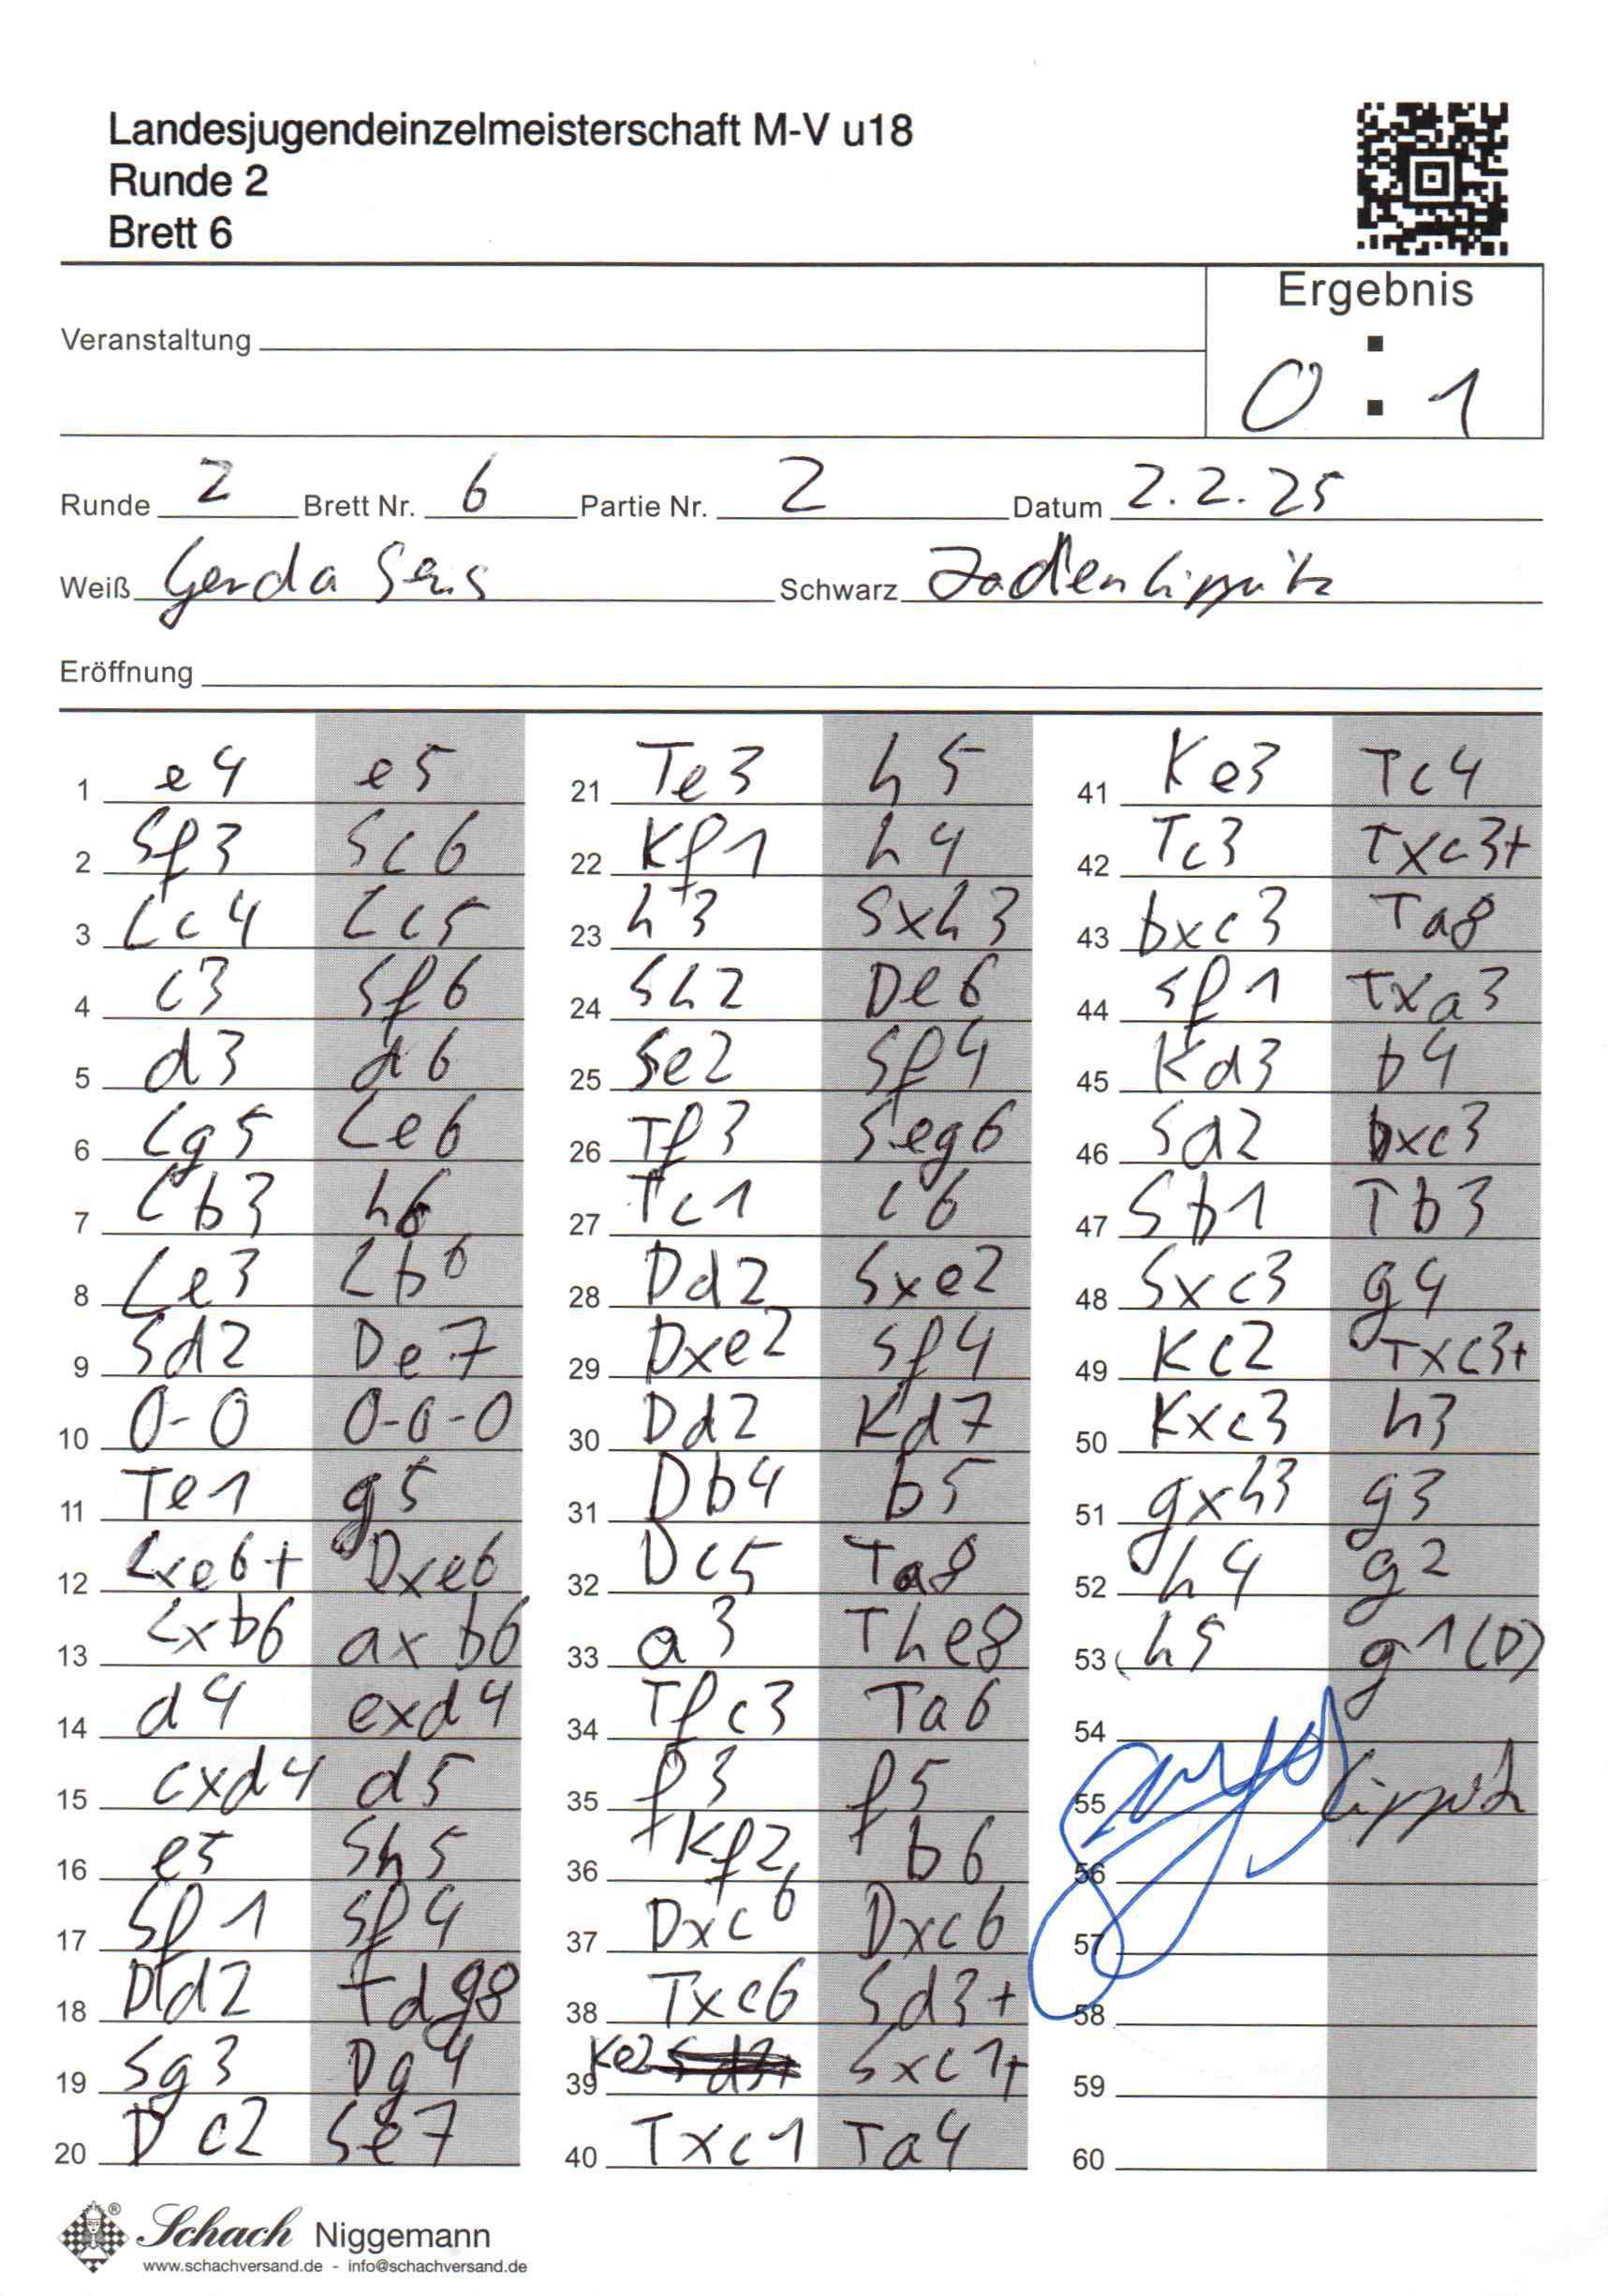 Landesjugendeinzelmeisterschaft M-V u18
Runde 2
Brett 6
Ergebnis
0 : 1
Veranstaltung
Runde 2 Brett Nr. 6 Partie Nr. 2 Datum 2.2.25
Weiß Gerda Sens Schwarz Jaden Lippitz
Eröffnung
1 e4 e5
2 Sf3 Sc6
3 Lc4 Lc5
4 c3 Sf6
5 d3 d6
6 Lg5 Le6
7 Lb3 h6
8 Le3 Lb6
9 Sd2 De7
10 0-0 0-0-0
11 Te1 g5
12 Lxe6+ Dxe6
13 Lxb6 axb6
14 d4 exd4
15 cxd4 d5
16 e5 Sh5
17 Sf1 Sf4
18 Dd2 Tdg8
19 Sg3 Dg4
20 Dc2 Se7
21 Te3 h5
22 Kf1 h4
23 h3 Sxh3
24 Sh2 De6
25 Se2 Sf4
26 Tf3 Seg6
27 Tc1 c6
28 Dd2 Sxe2
29 Dxe2 Sf4
30 Dd2 Kd7
31 Db4 b5
32 Dc5 Ta8
33 a3 The8
34 Tfc3 Ta6
35 f3 f5
36 Kf2 b6
37 Dxc6 Dxc6
38 Txc6 Sd3+
39 Ke2 Sxc1+
40 Txc1 Ta4
41 Ke3 Tc4
42 Tc3 Txc3+
43 bxc3 Ta8
44 Sf1 Txa3
45 Kd3 b4
46 Sd2 bxc3
47 Sb1 Tb3
48 Sxc3 g4
49 Kc2 Txc3+
50 Kxc3 h3
51 gxh3 g3
52 h4 g2
53 h5 g1(D)
54
55 Lippitz
56
57
58
59
60
Schach Niggemann
www.schachversand.de - info@schachversand.de